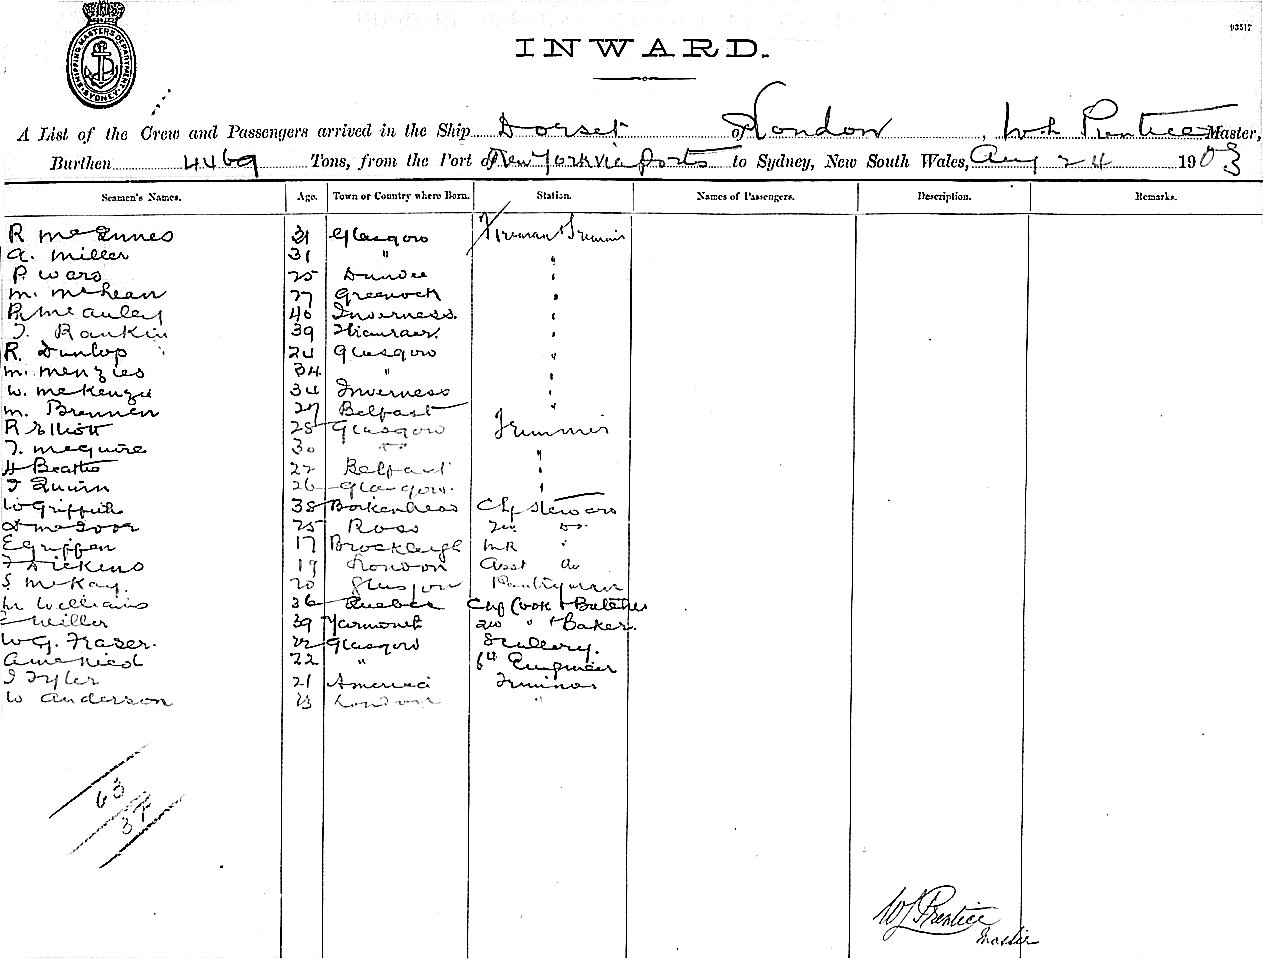 93517
SHIPPING MASTERS DEPARTMENT SYDNEY
INWARD.
A List of the Crew and Passengers arrived in the Ship Dorset of London, W L Prentice Master,
Burthen 4469 Tons, from the Port of New York via ports to Sydney, New South Wales, Aug 24 1903
Seamen's Names. Age. Town or Country where Born. Station. Names of Passengers. Description. Remarks.
R McInnes 31 Glasgow Fireman Trimmer
A. Miller 31 " "
P Ward 25 Dundee "
M. McLean 27 Greenock "
P. McAuley 40 Inverness. "
J. Rankin 39 "
R. Dunlop 24 Glasgow "
M. Menzies 34 " "
W. McKenzie 34 Inverness "
M. Brennen 27 Belfast "
R Elliott 28 Glasgow Trimmer
J. McGuire 30 "
H Beattie 27 Belfast "
J Quinn 26 Glasgow. "
W Griffith 38 Birkenhead Chf Steward
25 Ross 2nd do
E Griffen 17 "
19 London Asst do
S. McKay. 20 Glasgow Pantryman
M Williams 36 Quebec Chf Cook & Butcher
E Miller 39 Yarmouth 2nd " & Baker.
W G. Fraser. 22 Glasgow Scullery.
22 " 6th Engineer
J Tyler 21 America Trimmer
W Anderson 23 London "
63
37
W L Prentice
Master